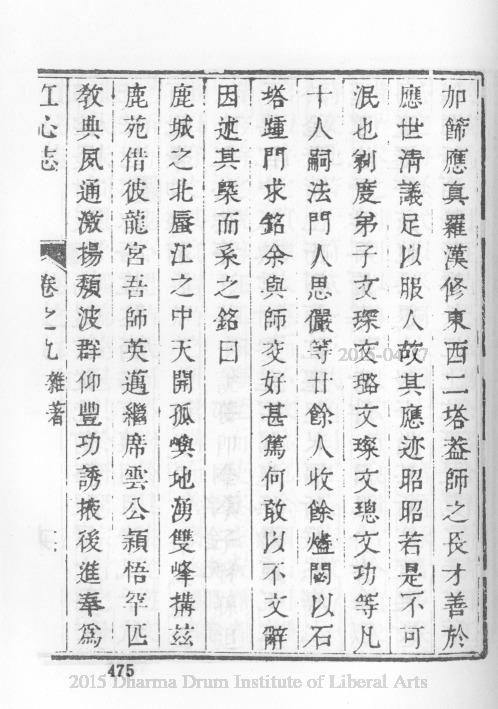 加飾應真羅漢修東西二塔葢師之長才善於
應世清議足以服人故其應迹昭昭若是不可
泯也剃度弟子文琛文璐文璨文璁文功等凡
十人嗣法門人思儼等廿餘人收餘燼閟以石
塔踵門求銘余與師交好甚篤何敢以不文辭
因述其槩而系之銘曰
鹿城之北蜃江之中天開孤嶼地湧雙峰搆茲
鹿苑借彼龍宮吾師英邁繼席雲公穎悟罕匹
教典夙通激揚頽波群仰豐功誘掖後進奉爲
江心志
卷之九 雜著
475
2015-04-07
2015 Dharma Drum Institute of Liberal Arts